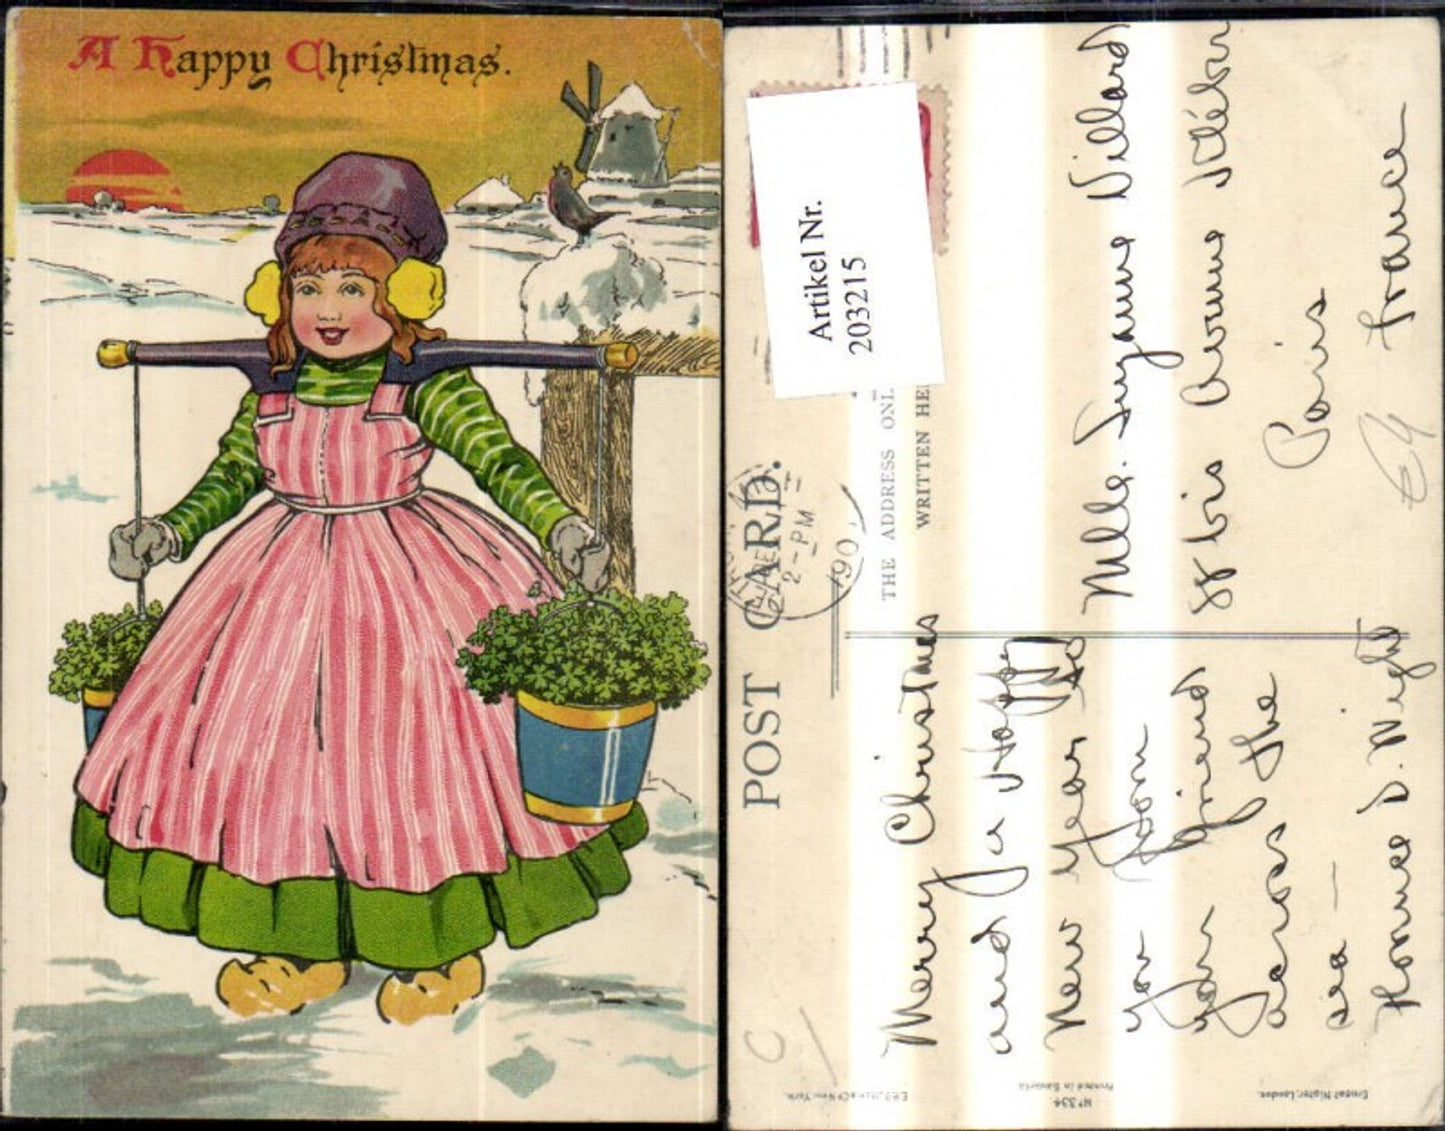 A Happy Christmas.
POST CARD.
Artikel Nr.
2032215
THE ADDRESS ONL
WRITTEN HE
2-PM
190
Merry Christmas
and a Happy
New Year to
you from
your friend
across the
sea —
Mlle. Suzanne Villard
8 bis Avenue Kléber
Paris
France
Ernest Nister, London.
Nº 334.
Printed in Bavaria
New York.